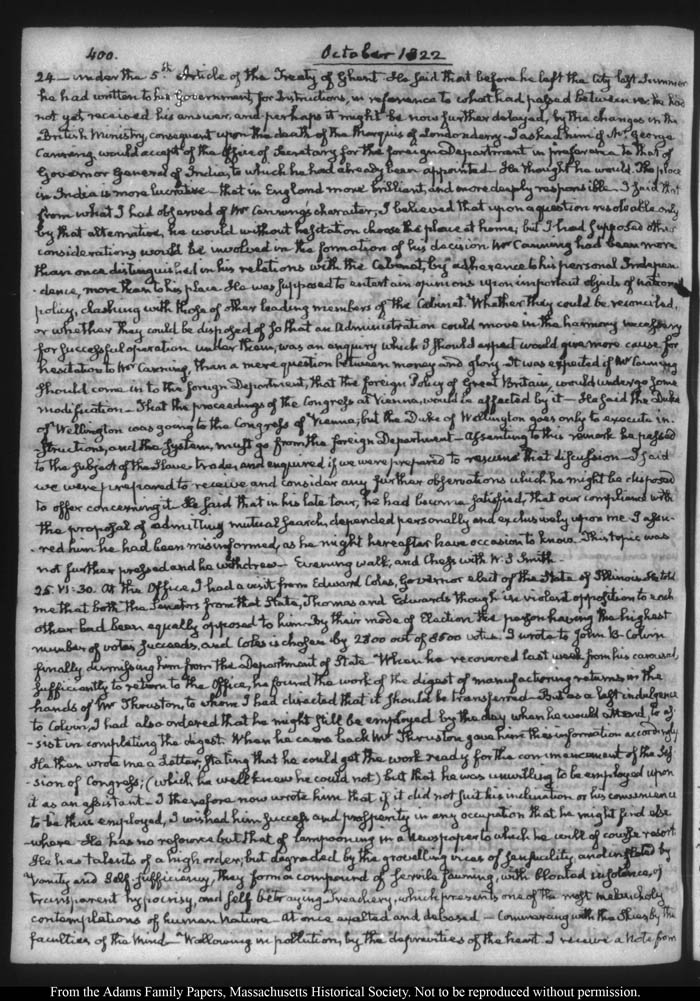 400. October 1822
24 — under the 5th Article of the Treaty of Ghent. He said that before he left the City last Summer
he had written to his Government, for Instructions, in reference to what had passed between us. He had
not yet received his answer, and perhaps it might be now further delayed, by the changes in the
British Ministry, consequent upon the death of the Marquis of Londonderry. I asked him if Mr George
Canning would accept of the Office of Secretary for the foreign Department in preference to that of
Governor General of India, to which he had already been appointed. He thought he would. The place
in India is more lucrative — that in England more brilliant, and more deeply responsible. I said that
from what I had observed of Mr Canning's character, I believed that upon a question resolvable only
by that alternative, he would without hesitation choose the place at home; but I had supposed other
considerations would be involved in the formation of his decision. Mr Canning had been more
than once distinguished in his relations with the Cabinet, by adherence to his personal Indepen-
-dence, more than to his place. He was supposed to entertain opinions upon important objects of national
policy, clashing with those of other leading members of the Cabinet. Whether they could be reconciled,
or whether they could be disposed of so that an Administration could move in the harmony necessary
for successful operation under them, was an enquiry which I should expect would give more cause for
hesitation to Mr Canning, than a mere question between money and glory. It was expected if Mr Canning
should come in to the foreign Department, that the foreign Policy of Great Britain, would undergo some
modification — That the proceedings of the Congress at Vienna, would be affected by it — He said the Duke
of Wellington was going to the Congress of Vienna; but the Duke of Wellington goes only to execute in-
structions, and the System, must go from the foreign Department — Assenting to this remark he passed
to the subject of the Slave trade, and enquired if we were prepared to resume that discussion — I said
we were prepared to receive and consider any further observations which he might be disposed
to offer concerning it. He said that in his late tour, he had become satisfied, that our compliance with
the proposal of admitting mutual search, depended personally and exclusively upon me. I assu-
-red him he had been misinformed, as he might hereafter have occasion to know. This topic was
not further pressed and he withdrew — Evening walk, and Chess with W. S. Smith —
25. VI:30. At the Office, I had a visit from Edward Coles, Governor elect of the State of Illinois. He told
me that both the Senators from that State, Thomas and Edwards though in violent opposition to each
other had been equally opposed to him. By their mode of Election the person having the highest
number of votes, succeeds, and Coles is chosen by 2800 out of 8600 votes. I wrote to John B. Colvin
finally dismissing him from the Department of State. When he recovered last week from his carousal,
sufficiently to return to the Office, he found the work of the digest of manufacturing returns in the
hands of Mr Thruston, to whom I had directed that it should be transferred — But as a last indulgence
to Colvin, I had also ordered that he might still be employed by the day when he would attend, to as-
-sist in completing the digest. When he came back Mr Thruston gave him this information accordingly
He then wrote me a Letter, stating that he could get the work ready for the commencement of the Ses-
-sion of Congress; (which he well knew he could not) but that he was unwilling to be employed upon
it as an assistant — I therefore now wrote him that if it did not suit his inclination or his convenience
to be thus employed, I wished him success and prosperity in any occupation that he might find else
-where. He has no resource but that of lampooning in a Newspaper to which he will of course resort
He has talents of a high order; but degraded by the grovelling vices of sensuality, and inflated by
vanity and Self-sufficiency, they form a compound of servile fawning, with bloated insolence, of
transparent hypocrisy, and self betraying Treachery, which presents one of the most melancholy
contemplations of human Nature — At once exalted and debased — Commercing with the Skies by the
faculties of the Mind — Wallowing in pollution, by the depravities of the heart. I receive a Note from
From the Adams Family Papers, Massachusetts Historical Society. Not to be reproduced without permission.